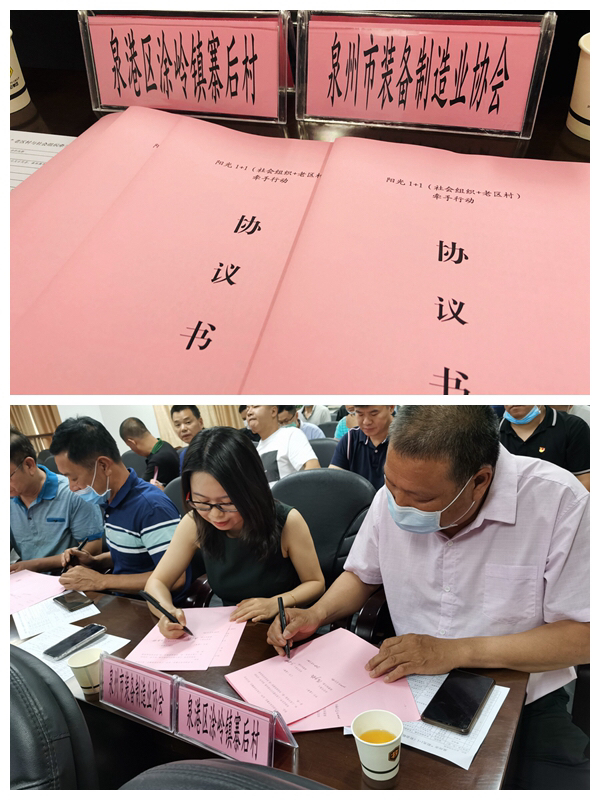 泉港区涂岭镇寨后村
泉州市装备制造业协会
阳光1+1（社会组织+老区村
牵手行动
协
议
书
阳光1+1（社会组织+老区村）
牵手行动
协
议
书
泉州市装备制造业协会
泉港区涂岭镇寨后村